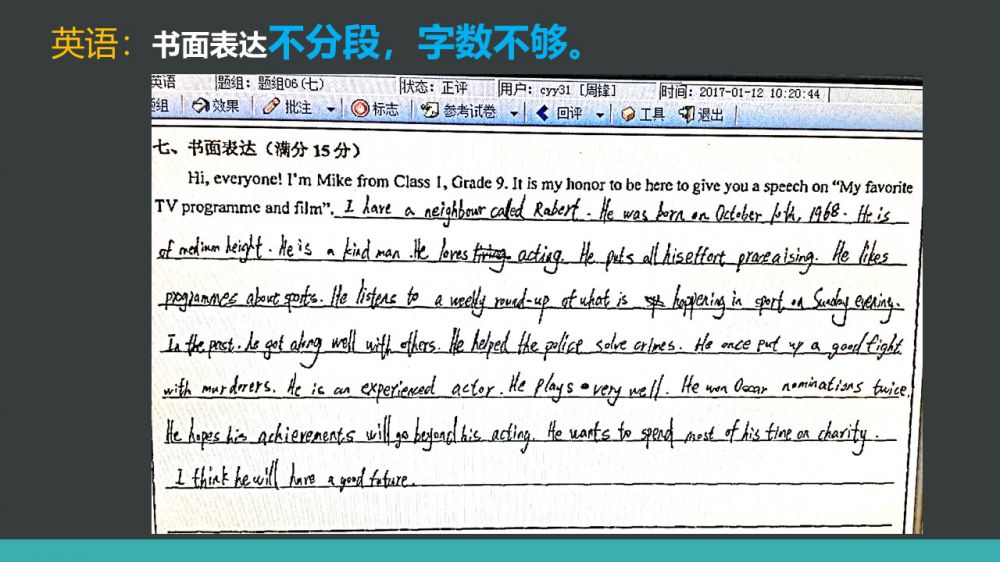 英语：书面表达不分段，字数不够。
英语 题组：题组06(七) 状态：正评 用户：cyy31 [周锋] 时间：2017-01-12 10:20:44
题组 效果 批注 标志 参考试卷 回评 工具 退出
七、书面表达（满分 15 分）
Hi, everyone! I'm Mike from Class 1, Grade 9. It is my honor to be here to give you a speech on “My favorite
TV programme and film”. I have a neighbour called Robert. He was born on October 10th, 1968. He is
of medium height. He is a kind man. He loves acting. He puts all his effort He likes
programmes about sports. He listens to a weekly round-up of what is happening in sport on Sunday evening.
In the past. he got along well with others. He helped the police solve crimes. He once put up a good fight
with murderers. He is an experienced actor. He plays very well. He won Oscar nominations twice.
He hopes his achievements will go beyond his acting. He wants to spend most of his time on charity.
I think he will have a good future.